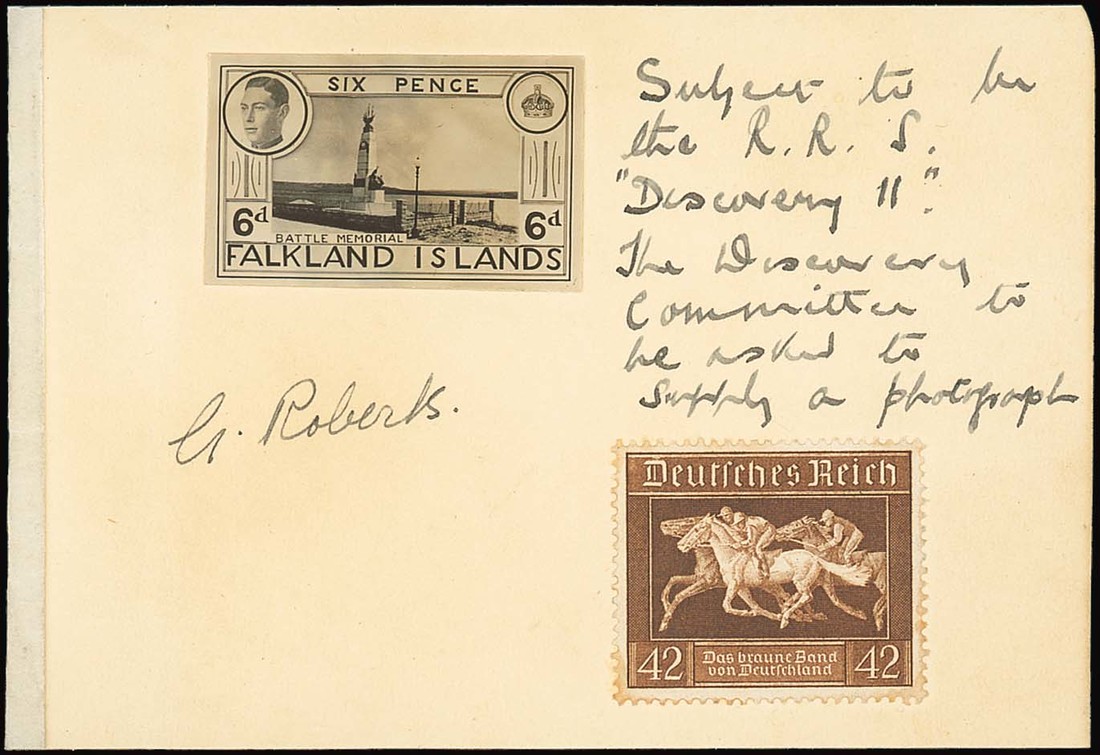 SIX PENCE
6d 6d
BATTLE MEMORIAL
FALKLAND ISLANDS
G. Roberts.
Subject to be
the R. R. S.
"Discovery II".
The Discovery
Committee to
be asked to
supply a photograph
Deutsches Reich
42 Das braune Band 42
von Deutschland